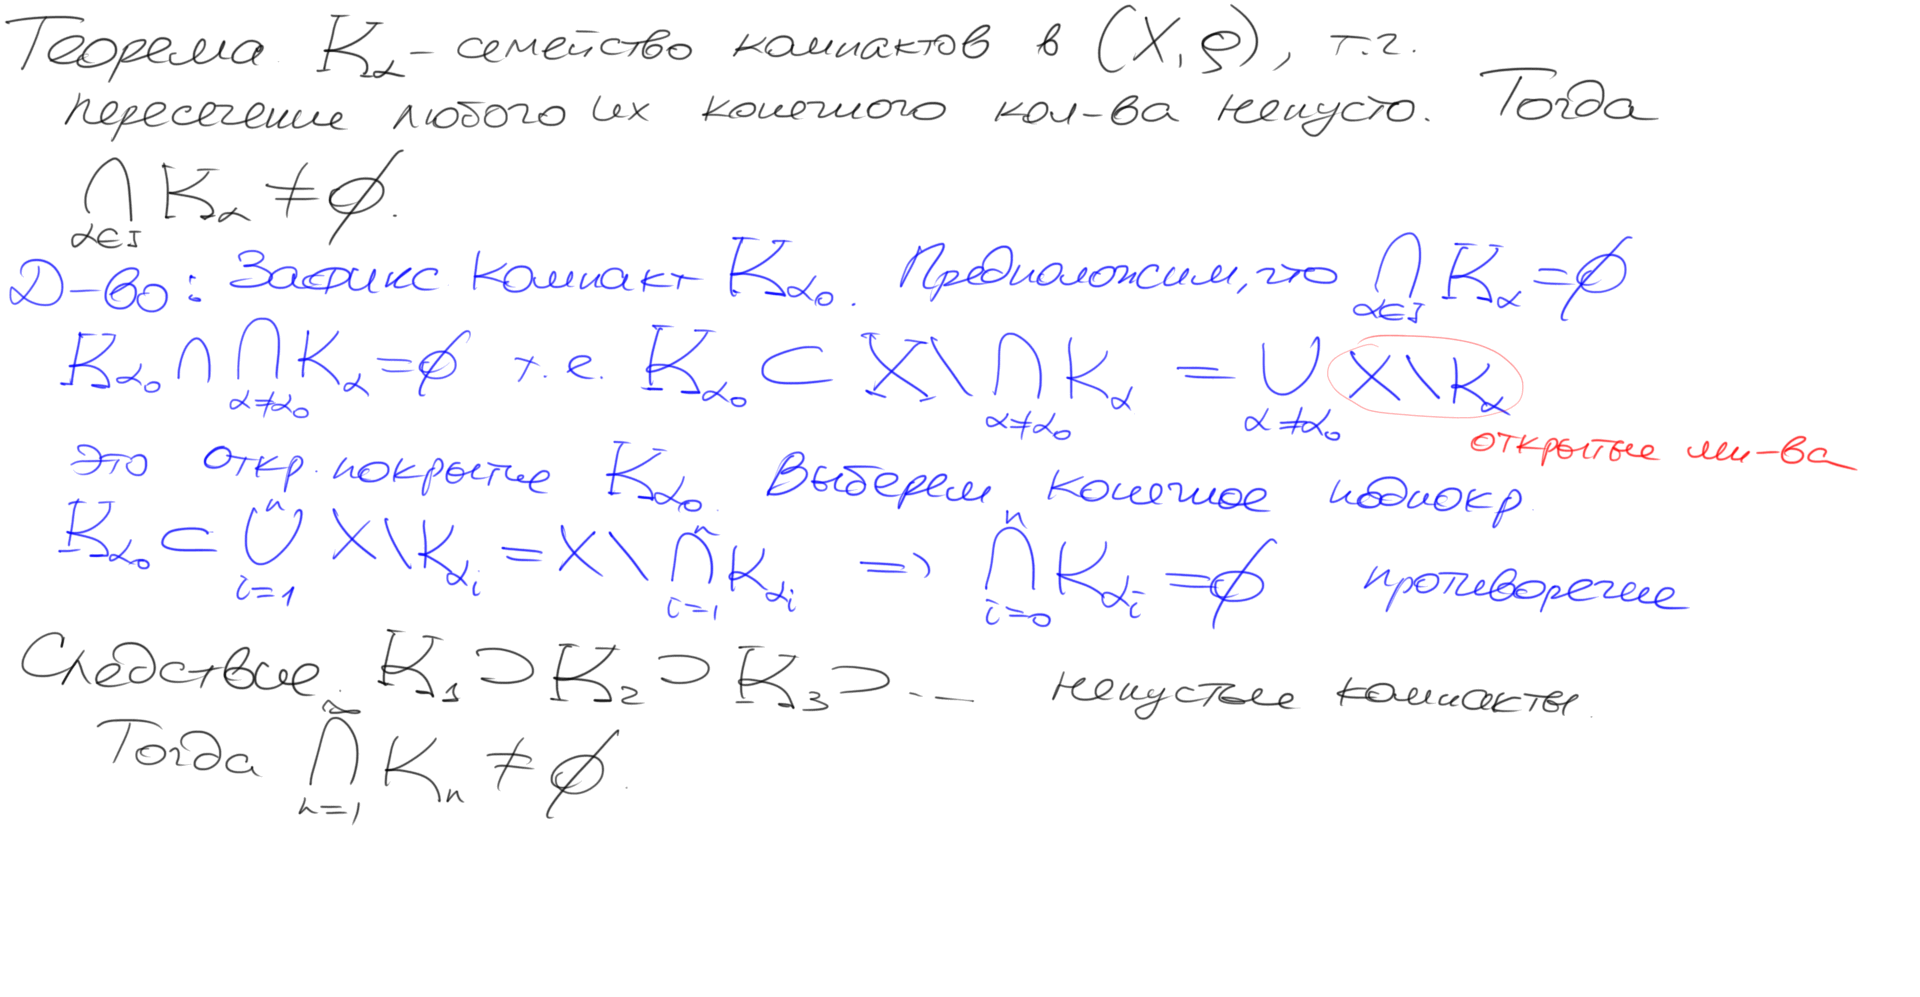 Теорема K_α – семейство компактов в (X, ρ), т.ч.
пересечение любого их конечного кол-ва непусто. Тогда
⋂_{α∈I} K_α ≠ ∅.
Д-во: Зафикс компакт K_{α₀}. Предположим, что ⋂_{α∈I} K_α = ∅
K_{α₀} ∩ ⋂_{α≠α₀} K_α = ∅ т.е. K_{α₀} ⊂ X \ ⋂_{α≠α₀} K_α = ⋃_{α≠α₀} X \ K_α
открытые мн-ва
это откр. покрытие K_{α₀}. Выберем конечное подпокр.
K_{α₀} ⊂ ⋃_{i=1}^{n} X \ K_{α_i} = X \ ⋂_{i=1}^{n} K_{α_i} ⇒ ⋂_{i=0}^{n} K_{α_i} = ∅ противоречие
Следствие. K₁ ⊃ K₂ ⊃ K₃ ⊃ ... непустые компакты.
Тогда ⋂_{n=1}^{∞} K_n ≠ ∅.